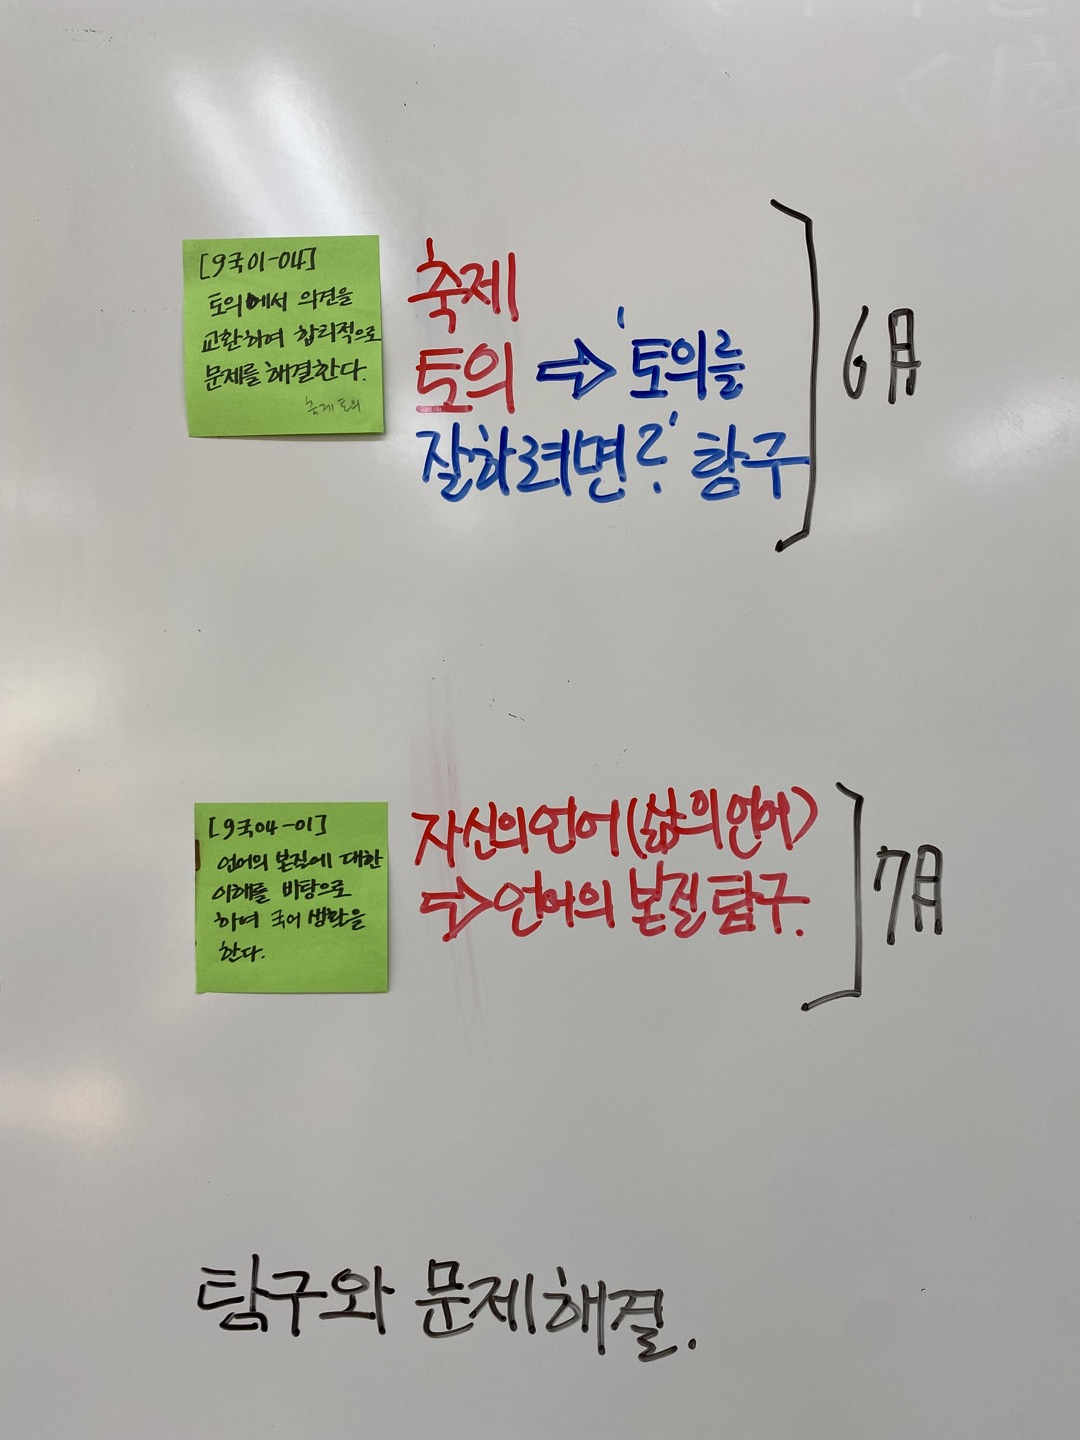 [9국01-04]
토의에서 의견을
교환하여 합리적으로
문제를 해결한다.
축제 토의
축제
토의 ⇨ '토의를
잘하려면?' 탐구
6月
[9국04-01]
언어의 본질에 대한
이해를 바탕으로
하여 국어 생활을
한다.
자신의 언어(삶의 언어)
⇨ 언어의 본질 탐구.
7月
탐구와 문제해결.